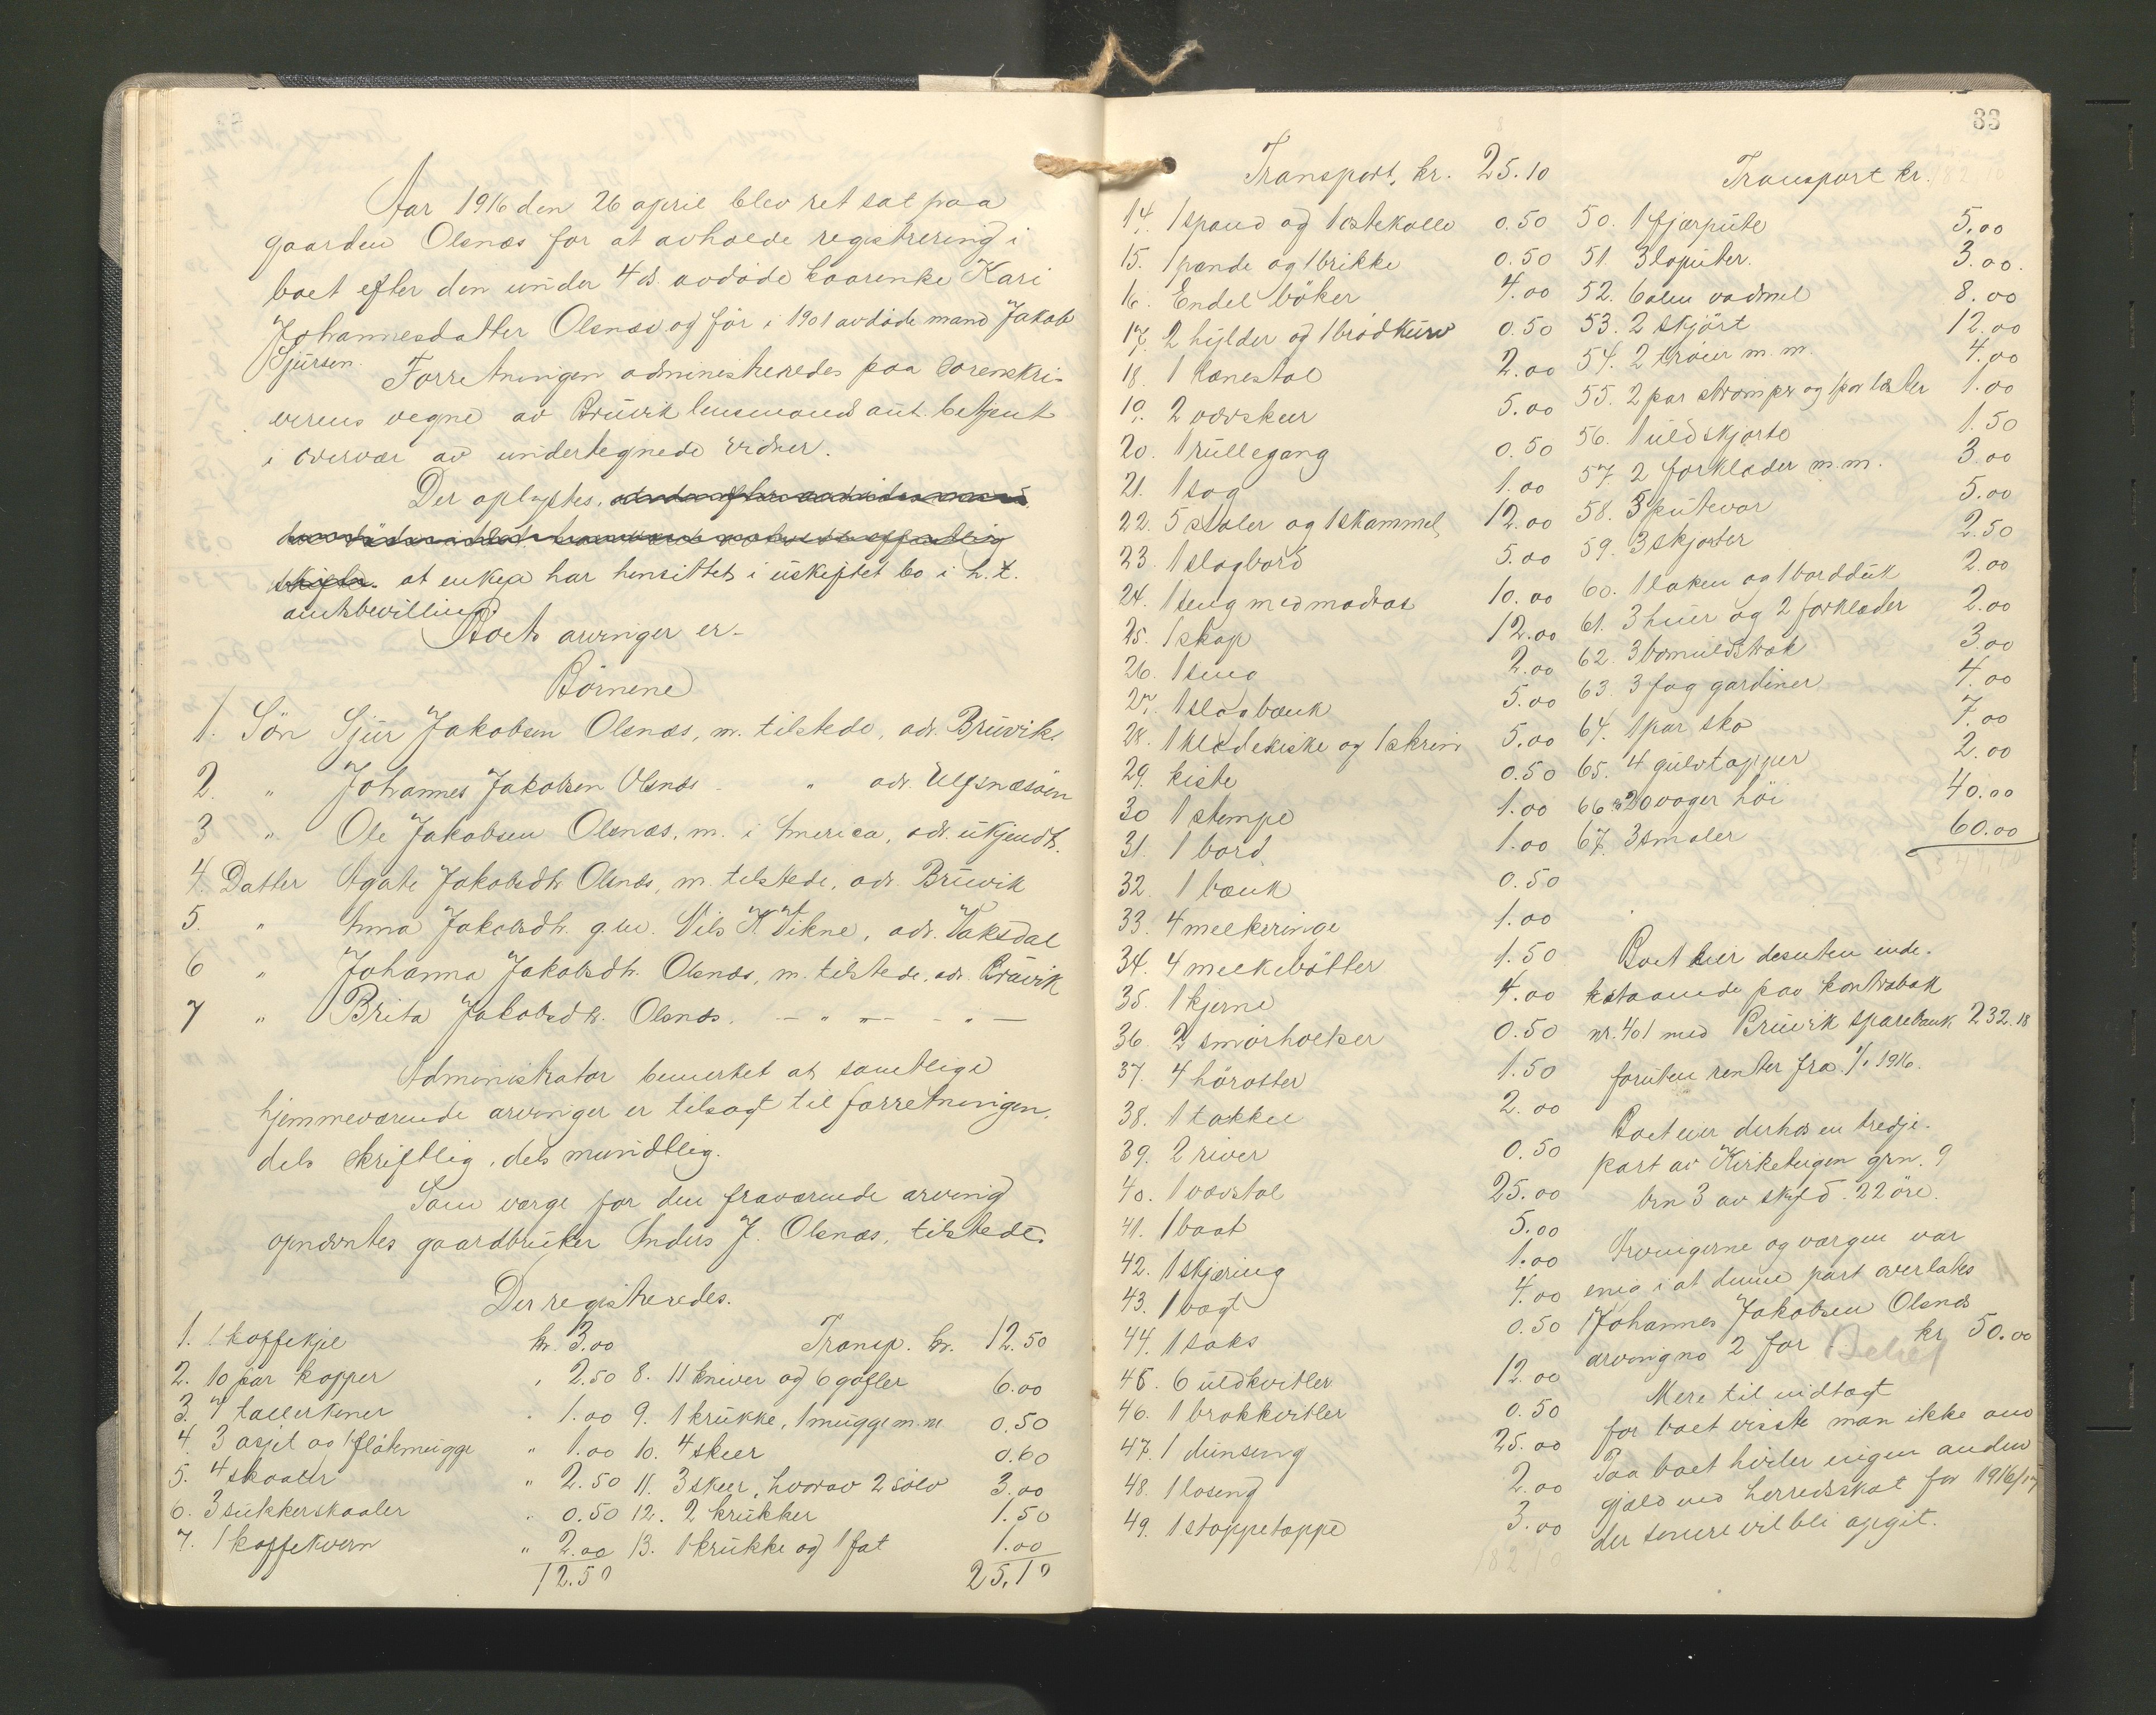 Aar 1916 den 26 april blev ret sat paa
gaarden Olsnæs for at avholde registrering i
boet efter den under 4 ds. avdøde kaarenke Kari
Johannesdatter Olsnæs og før i 1901 avdøde mand Jakob
Sjursen.
Forretningen administreredes paa sorenskri-
verens vegne av Bruvik lensmands aut. betjent
i overvær av undertegnede vidner.
Der oplystes,
at enkja har hensittet i uskiftet bo i h. t.
amtsbevilling.
Boets arvinger er -
Börnene
1. Sön Sjur Jakobsen Olsnæs, m. tilstede, adr. Bruvik.
2. " Johannes Jakobsen Olsnæs - " adr. Ulfsnæsöen
3 " Ole Jakobsen Olsnæs, m. i America, adr. ukjendt.
4. Datter Agate Jakobsdtr Olsnæs, m. tilstede, adr. Bruvik
5. " Anna Jakobsdtr. g. m. Nils K Vikne, adr. Vaksdal
6 " Johanna Jakobsdtr. Olsnæs, m. tilstede, adr. Bruvik
7 " Brita Jakobsdtr. Olsnæs. - " - - " -
Administrator bemerket at samtlige
hjemmeværende arvinger er tilsagt til forretningen,
dels skriftlig, dels mundtlig.
Som værge for den fraværende arving
opnævntes gaardbruker Anders J. Olsnæs, tilstede.
Der registreredes.
1. 1 kaffekjel kr. 3.00
2. 10 par kopper " 2.50
3. 7 tallerkener " 1.00
4. 3 asjet og 1 flötemugge " 1.00
5. 4 skaaler " 2.50
6. 3 sukkerskaaler " 0.50
7. 1 kaffekvern " 2.00
12.50
Transp. kr. 12.50
8. 11 kniver og 6 gafler 6.00
9. 1 krukke, 1 mugge m. m. 0.50
10. 4 skeer 0.60
11. 3 skeer, hvorav 2 sölv 3.00
12. 2 krukker 1.50
13. 1 krukke og 1 fat 1.00
25.10
33
Transport, kr. 25.10
14. 1 spand og 1 ostekolle 0.50
15. 1 pande og 1 brikke 0.50
16. Endel böker 4.00
17. 2 hylder og 1 brödkurv 0.50
18. 1 lænestol 2.00
19. 2 vævskeer 5.00
20. 1 rullegang 0.50
21. 1 sag 1.00
22. 5 stoler og 1 skammel 12.00
23. 1 slagbord 5.00
24. 1 seng med madras 10.00
25. 1 skap 12.00
26. 1 seng 2.00
27. 1 slagbænk 5.00
28. 1 klædekiste og 1 skrin 5.00
29. kiste 0.50
30 1 stampe 1.00
31. 1 bord 1.00
32. 1 bænk 0.50
33. 4 melkeringe 1.00
34. 4 melkebötter 1.50
35. 1 kjerne 4.00
36. 2 smörholker 0.50
37. 4 hörotter 1.50
38. 1 takke 2.00
39. 2 river 0.50
40. 1 vævstol 25.00
41. 1 baat 5.00
42. 1 skjæring 1.00
43. 1 vogt 4.00
44. 1 saks 0.50
45. 6 uldkvitler 12.00
46. 1 brokkvitler 0.50
47. 1 dunseng 25.00
48. 1 loseng 2.00
49. 1 stoppetæppe 3.00
182.10
Transport kr.
50. 1 fjærpute 5.00
51. 3 loputer. 3.00.
52. 6 alen vadmel 8.00
53. 2 skjört 12.00
54. 2 tröier m. m. 4.00
55. 2 par strömper og 1 par læster 1.00
56. 1 uldskjorte 1.50
57. 2 forklæder m. m. 3.00
58. 5 putevar 5.00
59. 3 skjorter 2.50
60. 1 laken og 1 borddúk 2.00
61. 3 huer og 2 forklæder 2.00
62. 3 bomuldstrøk 3.00
63. 3 fag gardiner 4.00
64. 1 par sko 7.00
65. 4 gulvtæpper 2.00
66. 20 vager höi 40.00
67. 3 smaler 60.00
Boet eier desuten inde-
staaende paa kontrabok
nr. 401 med Bruvik sparebank 232.18
foruten renter fra 1/1 1916.
Boet eier derhos en tredje-
part av Kirketeigen grn. 9
brn 3 av skyld 22 öre.
Arvingerne og værgen var
enig i at denne part overlates
Johannes Jakobsen Olsnæs
arving no 2 for kr 50.00
Mere tilvidtagt
for boet visste man ikke av.
Paa boet hviler ingen anden
gjæld end herredsskat for 1916/17
der senere vil bli opgit.